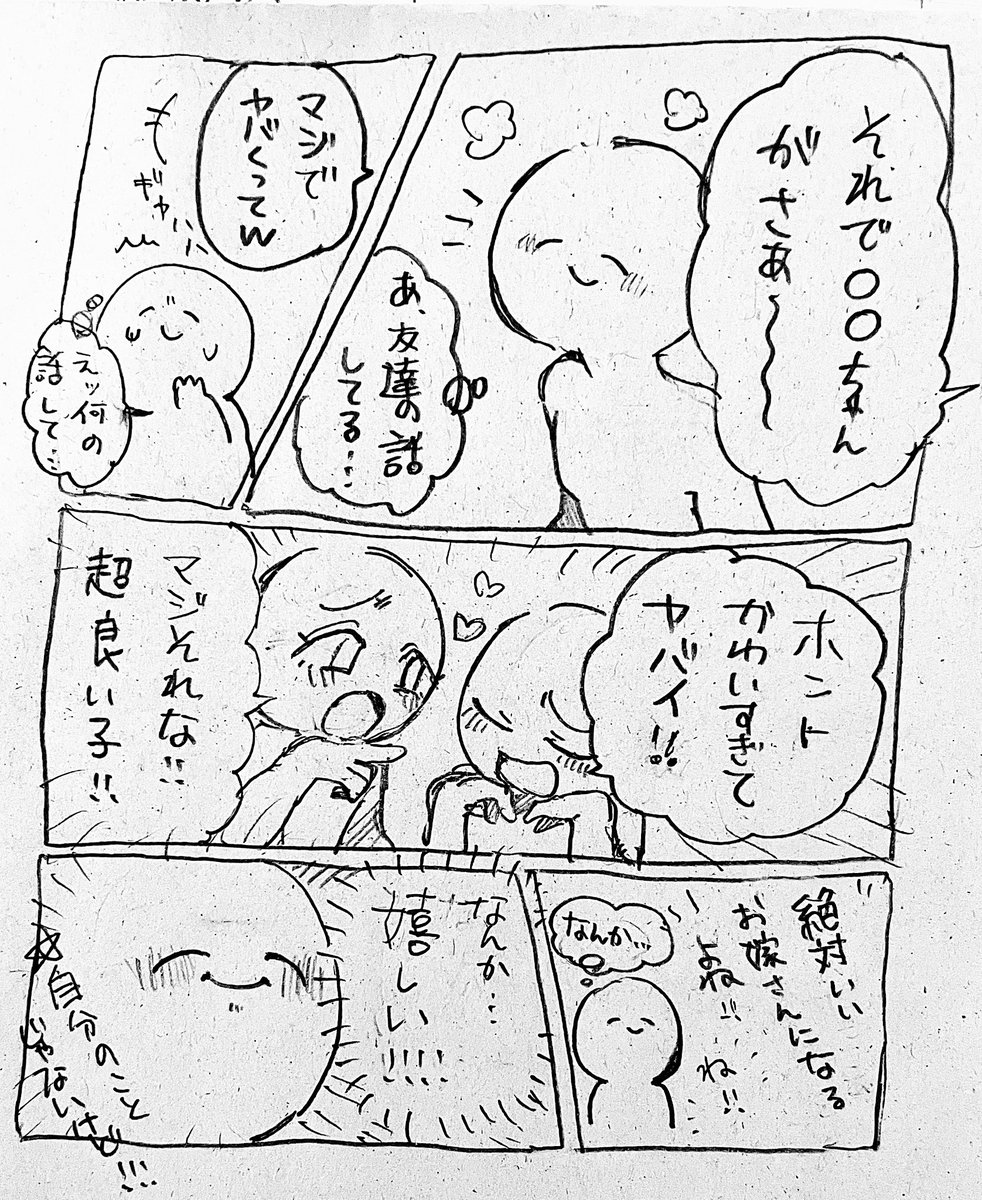 それで〇〇ちゃん
がさぁ〜
あ、友達の話
してる…
マジで
ヤバくってw
えッ何の
話して…
ホント
かわいすぎて
ヤバイ!!
マジそれな!!
超良い子!!
絶対いい
お嫁さんになる
よね!! ね!!
なんか…
なんか…
嬉しい!!!!
自分のこと
じゃないけど!!!